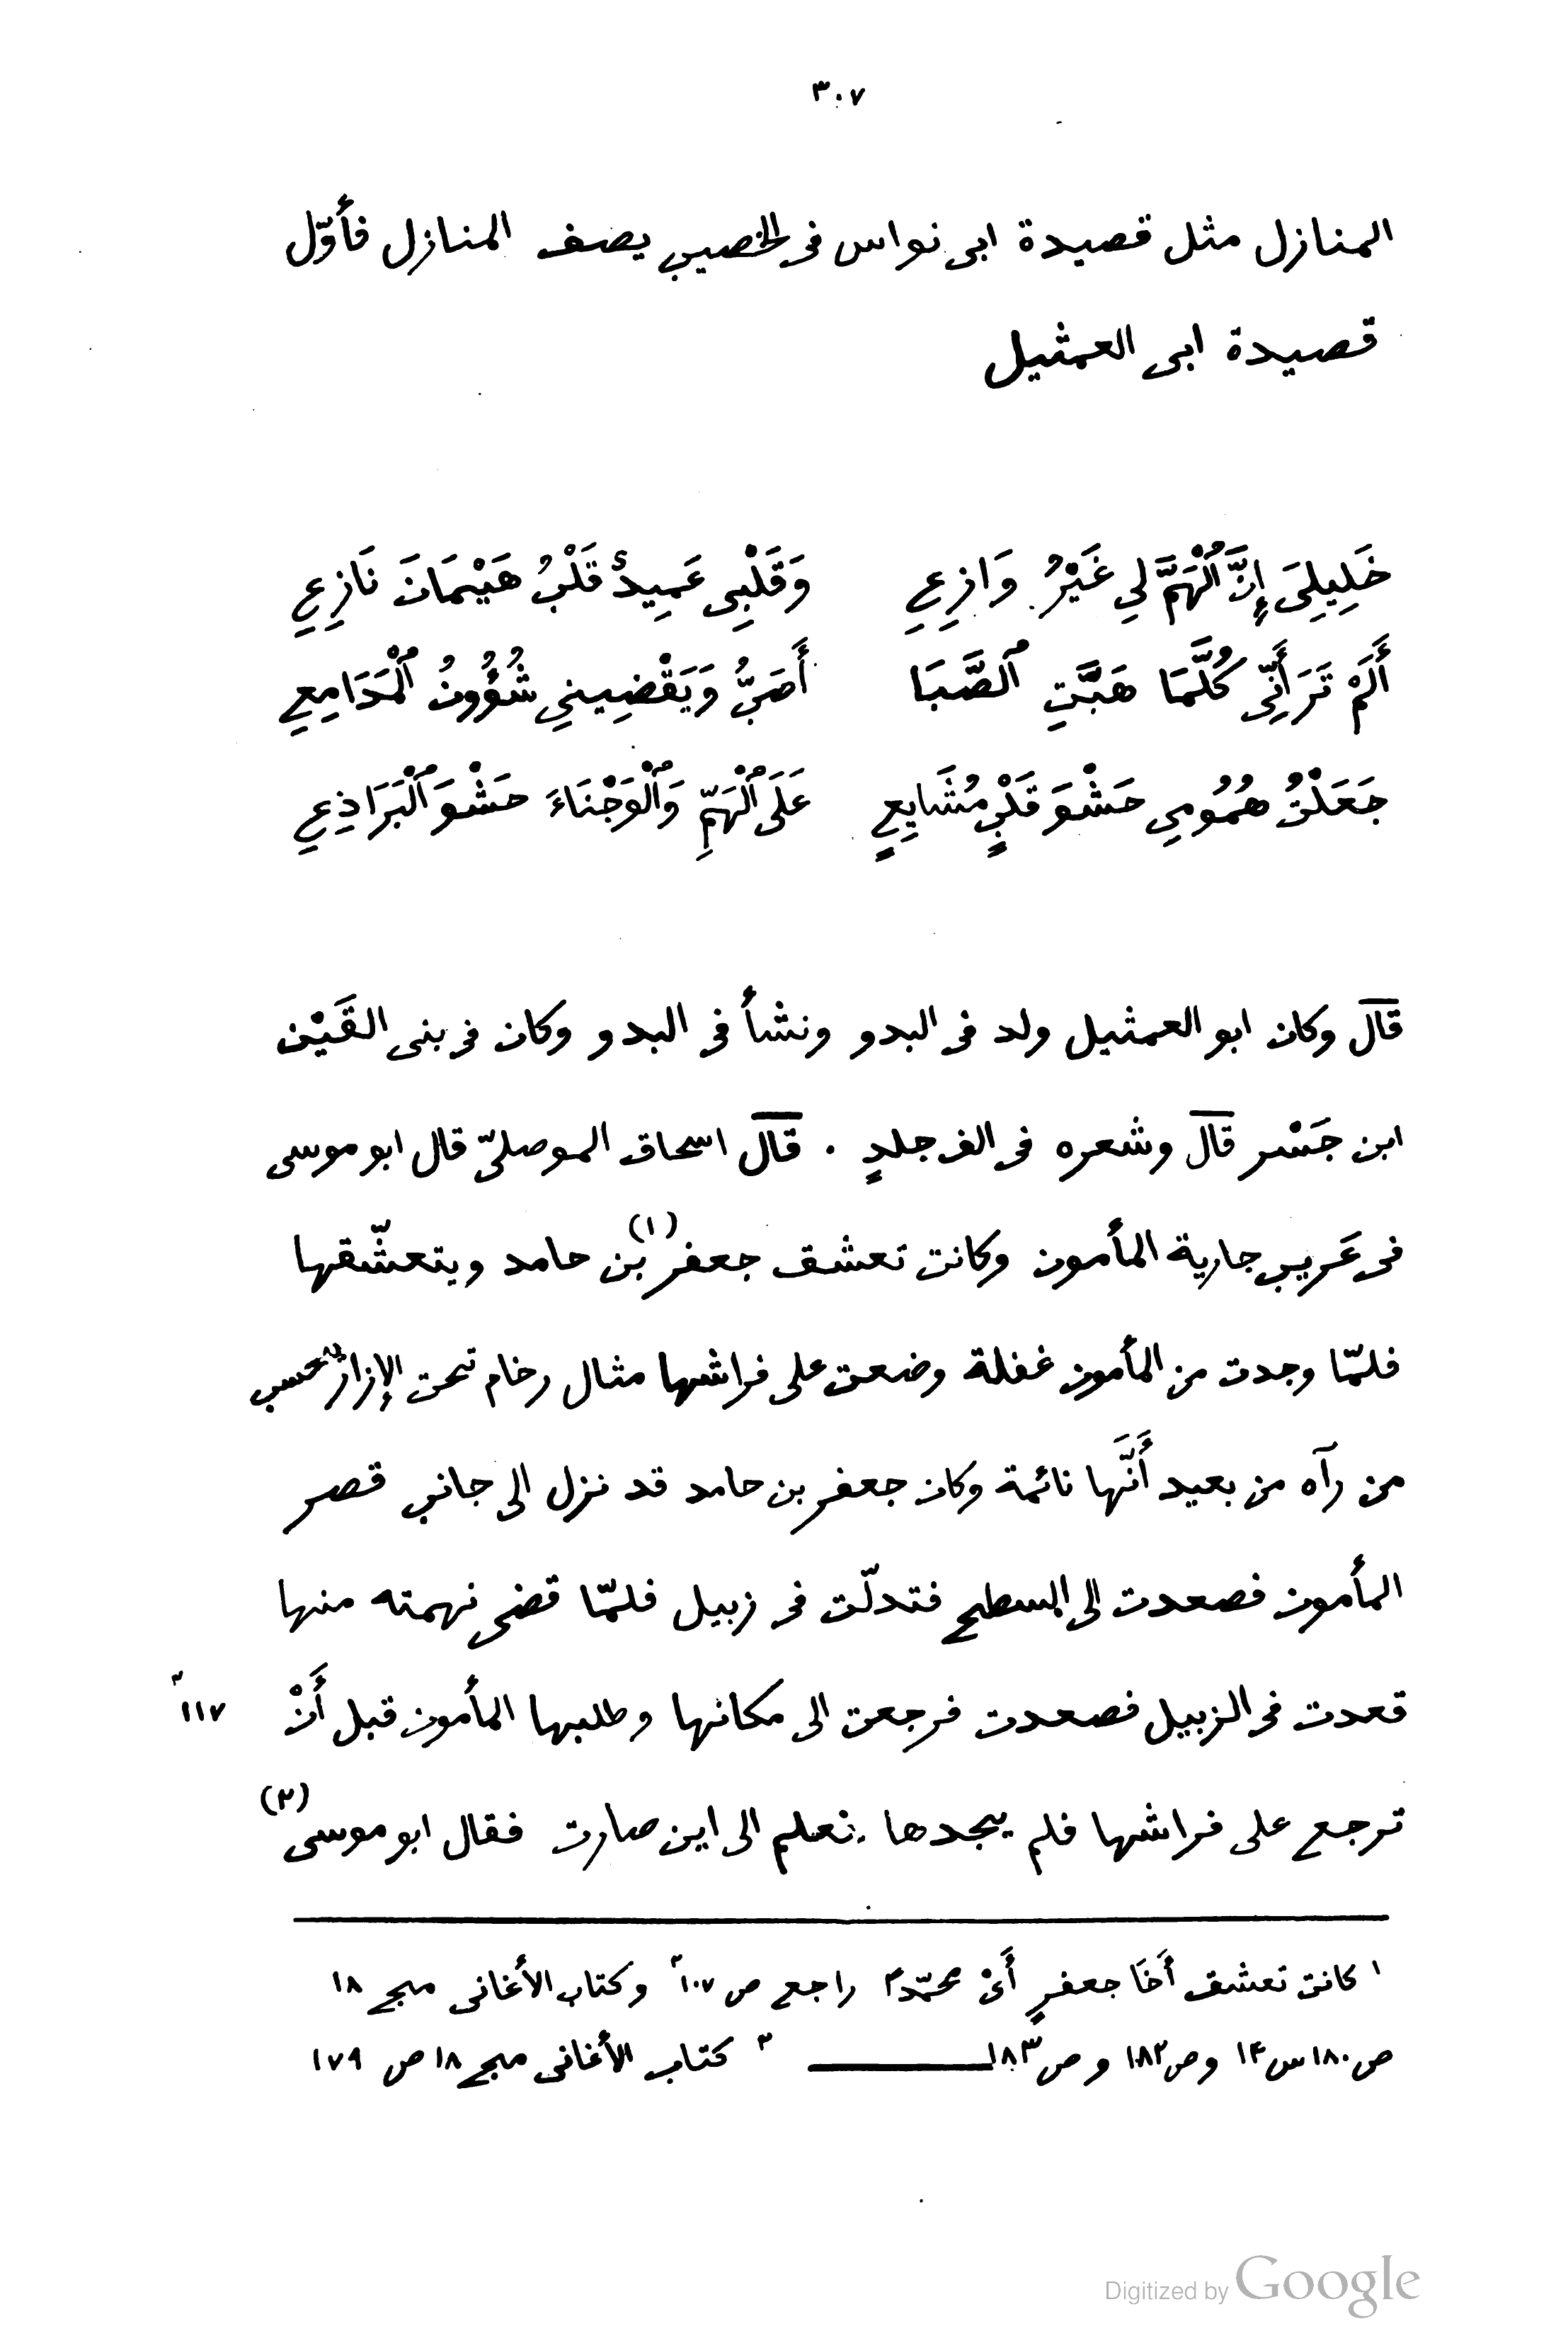 ٣٠٧
المنازل مثل قصيدة ابى نواس فى الخصيب يصف المنازل فأوّل
قصيدة ابى العمثيل
خَلِيلِىَ إِنَّ ٱلْهَمَّ لِي غَيْرُ وَازِعِ وَقَلْبِى عَمِيدٌ قَلْبُ هَيْمَانَ نَازِعِ
أَلَمْ تَرَ أَنِّى كُلَّمَا هَبَّتِ ٱلصَّبَا أَصَبُّ وَيَقْضِينِي شُؤُونُ ٱلْمَدَامِعِ
جَعَلْتُ هُمُومِي حَشْوَ قَلْبٍ مُشَايِعٍ عَلَى ٱلْهَمِّ وَٱلْوَجْنَاءَ حَشْوَ ٱلْبَرَاذِعِ
قال وكان ابو العمثيل ولد فى البدو ونشأ فى البدو وكان فى بنى القَيْن
ابن جَسْر قال وشعره فى الف جلدٍ . قال اسحاق الموصلىّ قال ابو موسى
فى عَريب جارية المأمون وكانت تعشق جعفر (١) بن حامد ويتعشّقها
فلمّا وجدت من المأمون غفلة وضعت على فراشها مثال رخام تحت الإزار يحسب
من رآه من بعيد أَنَّها نائمة وكان جعفر بن حامد قد نزل الى جانب قصر
المأمون فصعدت الى السطح فتدلّت فى زبيل فلمّا قضى نهمته منها
قعدت فى الزبيل فصعدت فرجعت الى مكانها وطلبها المأمون قبل أَنْ ١١٧
ترجع على فراشها فلم يجدها نعلم الى اين صارت فقال ابو موسى (٢)
١ كانت تعشق أَخَا جعفرٍ أَىْ محمّدًا راجع ص ١٠٧ وكتاب الأغانى مج ١٨
ص ١٨٠ س ١٤ وص ١٨٢ و ص ١٨٣ ٢ كتاب الأغانى مج ١٨ ص ١٧٩
Digitized by Google